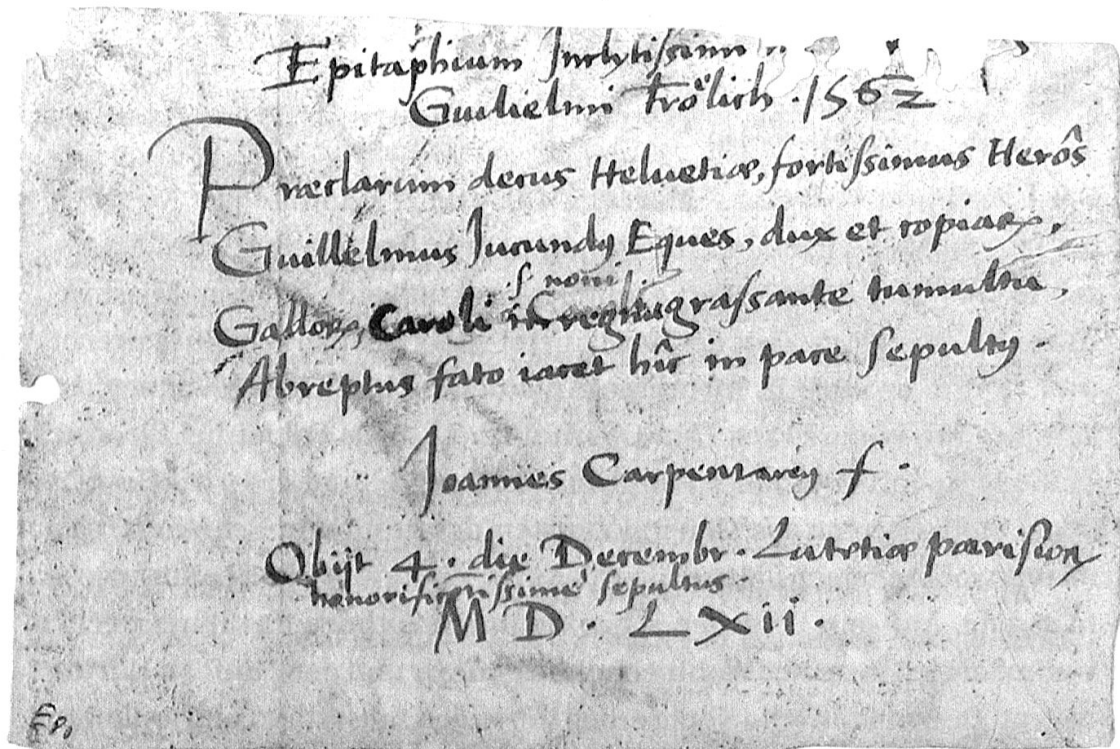 Epitaphium Inclytissimi
Guilielmi Frölich . 1562
Præclarum decus Helvetiæ, fortissimus Herôs
Guillelmus Jucundꝰ Eques, dux et copiaꝝ,
noni
Galloꝝ, Caroli grassante tumultu,
Abreptus fato iacet hîc in pace sepultꝰ.
Joannes Carpentariꝰ f.
Obijt 4. die Decembr. Lutetiæ parisioꝝ
honorificētissimè sepultus.
M D. L X i i .